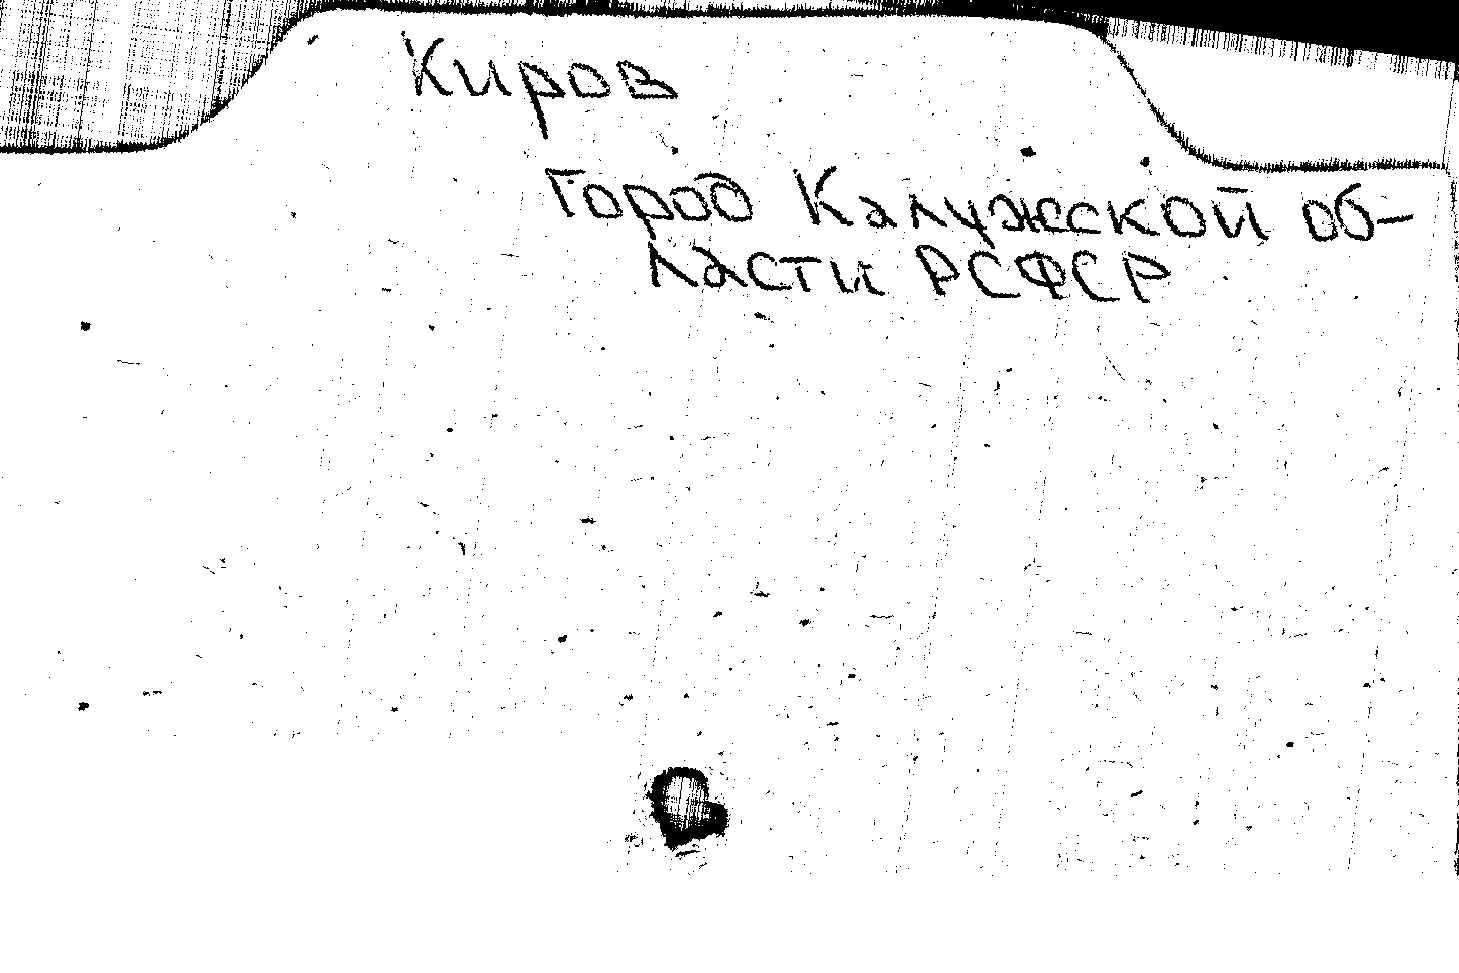 Киров
Город Калужской об-
ласти РСФСР